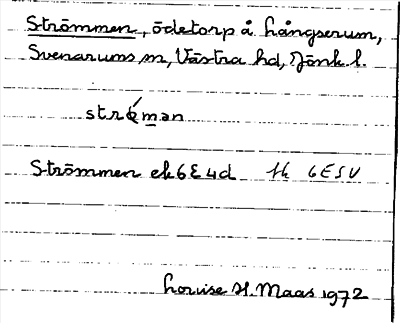 Strömmen, ödetorp å Långserum,
Svenarums sn, Västra hd, Jönk. l.
strǿmən
Strömmen ek 6E4d tk 6E SV
Louise H. Maas 1972